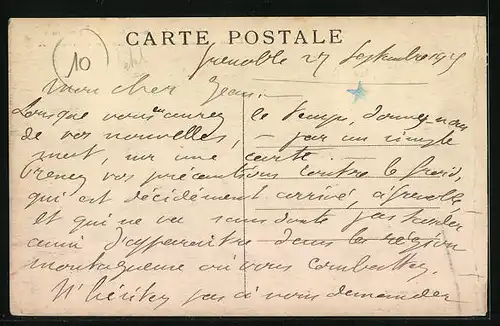 10
CARTE POSTALE
Grenoble 27 Septembre 1915
Mon cher Jean. —
Lorsque vous en aurez le temps, donnez-nous
de vos nouvelles, — par un simple
mot, sur une carte. —
Prenez vos précautions contre le froid,
qui est décidément arrivé, à Grenoble
et qui ne va sans doute pas tarder
aussi d'apparaître dans la région
montagneuse où vous combattez.
N'hésitez pas à nous demander